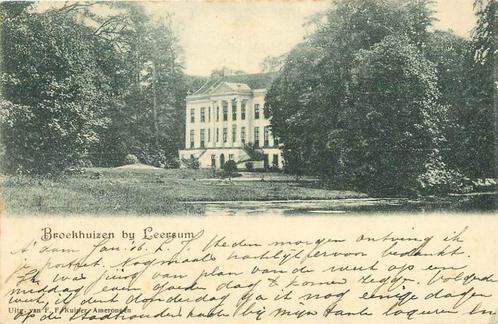 Broekhuizen by Leersum
A'dam Jan. 16. Heden morgen ontving ik
je portret. Nogmaals hartelijk ervoor bedankt.
Ik was juist van plan van de week op een
middag even goeden dag te komen zeggen. Volgende
week, ik denk donderdag ga ik nog eenige dagen
op de Stadhouderskade bij mijn tante logeeren en
Uitg. van F. F. Kuiper, Amerongen